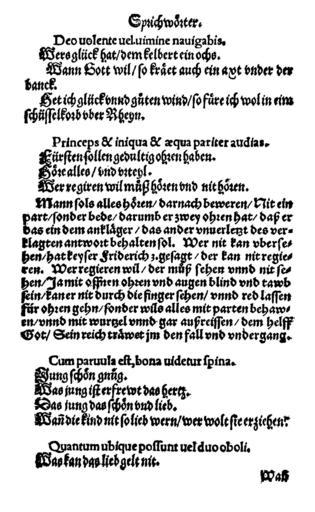 Sprichwörter.
Deo uolente uel uimine nauigabis.
Wers glück hat/dem kelbert ein ochs.
Wann Gott wil/so kräet auch ein axt vnder der
banck.
Het ich glück vnnd gůten wind/so füre ich wol in eim
schüsselkorb vber Rheyn.
Princeps & iniqua & æqua pariter audias.
Fürsten sollen gedultig ohren haben.
Höre alles/vnd vrteyl.
Wer regiren wil můß hören vnd nit hören.
Mann sols alles hören/darnach beweren/Nit ein
part/sonder bede/darumb er zwey ohren hat/daß er
das ein dem ankläger/das ander vnuerletzt des ver-
klagten antwort behalten sol. Wer nit kan vberse-
hen/hat keyser Friderich 3. gesagt/der kan nit regie-
ren. Wer regieren wil/der můß sehen vnnd nit se-
hen/Ja mit offnen ohren vnd augen blind vnd tawb
sein/kan er nit durch die finger sehen/vnnd red lassen
für ohren gehn/sonder wils alles mit parten behaw-
en/vnnd mit wurtzel vnnd gar außreissen/dem helff
Got/Sein reich träwet jm den fall vnd vndergang.
Cum paruula est, bona uidetur spina.
Jung schön gnůg.
Was jung ist erfrewt das hertz.
Das jung das schön vnd lieb.
Wañ die kind nit so lieb wern/wer wolt sie erziehen?
Quantum ubique possunt uel duo oboli.
Was kan das lieb gelt nit.
Waß